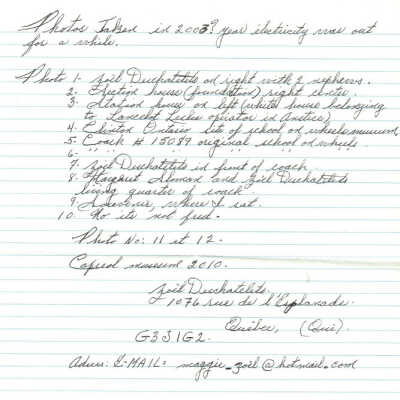 Photos Taken in 2003? year electricity was out
for a while.
Photo 1- Zoïl Duchatelets on right with 2 nephews.
2- Section house (foundation) right center.
3- Station house on left (white house belonging
to Lancelot Leslie operator in Amstice)
4- Clinton Ontario site of school on wheels museum
5- Coach # 15089 original school on wheels.
6- " " " " " " "
7- Zoïl Duchatelets in front of coach.
8- Margaret and Zoïl Duchatelets
living quarter of coach.
9- Souvenir, where I sat.
10- No its not fred.
Photo No: 11 et 12.
Capreol museum 2010.
Zoïl Duchatelets.
1076 rue de l'Esplanade.
Québec, (Qué).
G3S1G2.
Adress: E-MAIL: maggie_zoil@hotmail.com